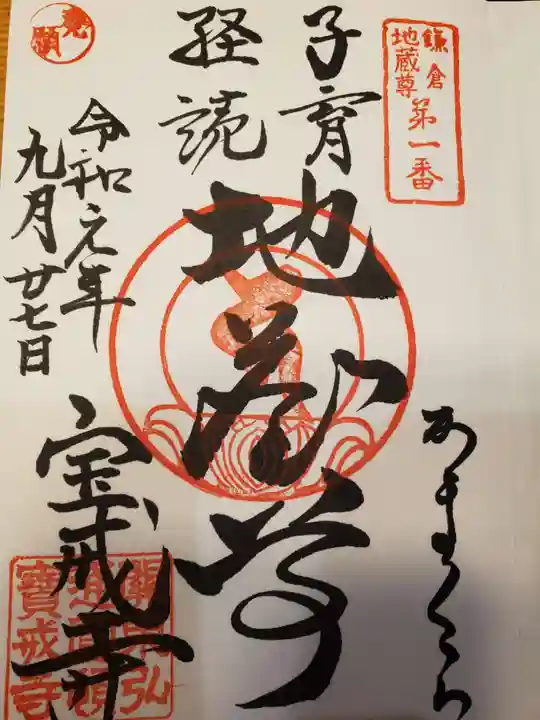 鎌倉
地蔵尊
第一番
かまくら
子育
経読
地蔵尊
令和元年
九月廿七日
宝戒寺
寶戒寺